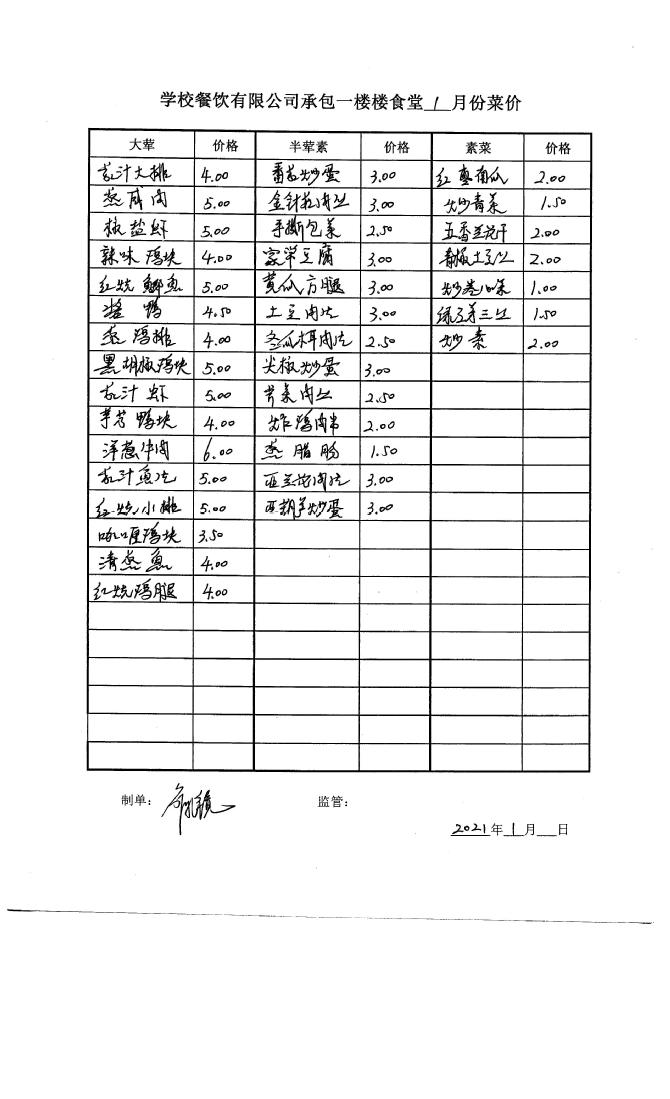 学校餐饮有限公司承包一楼楼食堂1月份菜价
大荤 价格 半荤素 价格 素菜 价格
茄汁大排 4.00 番茄炒蛋 3.00 红枣南瓜 2.00
蒸咸肉 5.00 金针菇肉丝 3.00 炒青菜 1.50
椒盐虾 5.00 手撕包菜 2.50 五香兰花干 2.00
辣味鸡块 4.00 家常豆腐 3.00 青椒土豆丝 2.00
红烧鲫鱼 5.00 黄瓜方腿 3.00 炒卷心菜 1.00
酱鸭 4.50 土豆肉片 3.00 绿豆芽三丝 1.50
蒸鸡排 4.00 冬瓜木耳肉片 2.50 炒素 2.00
黑胡椒鸡块 5.00 尖椒炒蛋 3.00
茄汁虾 5.00 芹菜肉丝 2.50
芋艿鸭块 4.00 炸鸡肉串 2.00
洋葱牛肉 6.00 蒸腊肠 1.50
茄汁鱼片 5.00 西兰花肉片 3.00
红烧小排 5.00 西葫芦炒蛋 3.00
咖喱鸡块 3.50
清蒸鱼 4.00
红烧鸡腿 4.00
制单: 监管:
2021年1月 日